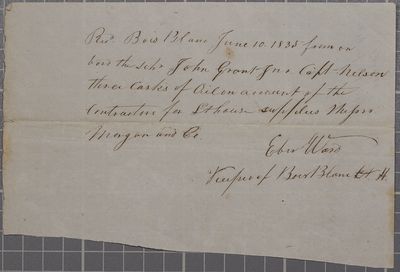 Recd. Bois Blanc June 10. 1835 from on
bord the Schr John Grant Jnr Capt Nelson
three Casks of Oil on account of the
Contractors for Lthouse supplies Messrs
Morgan and Co.
Eber Ward
Keeper of Bois Blanc Lt H.